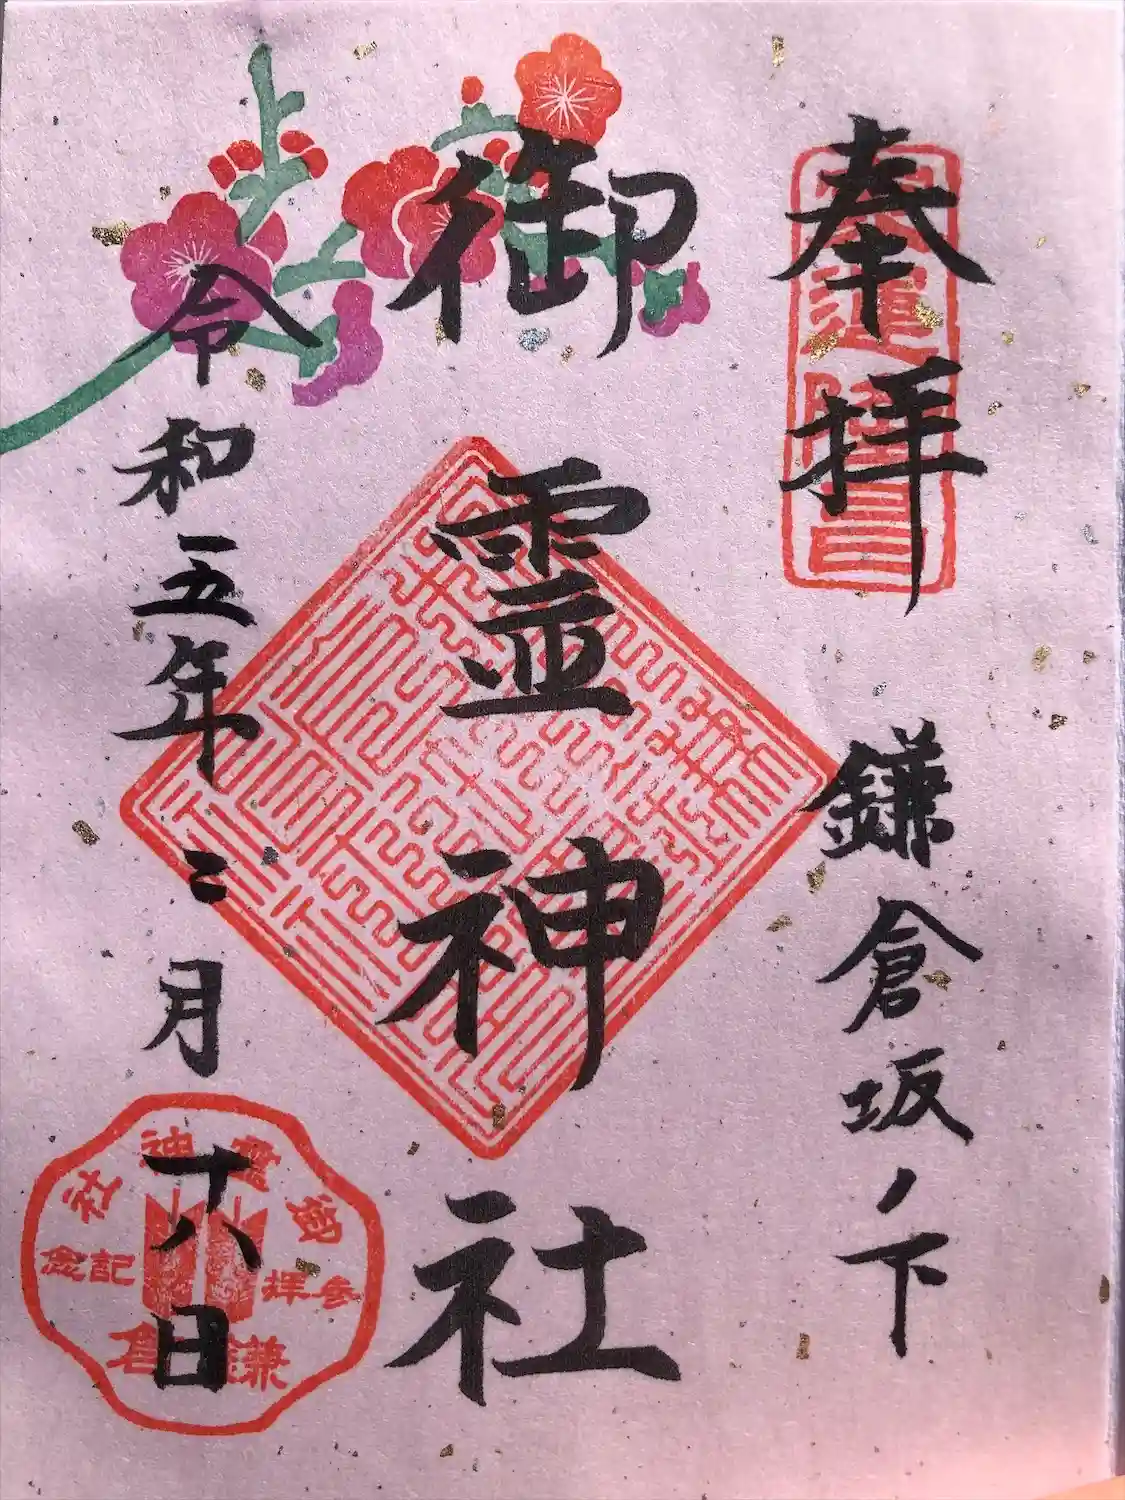 奉拝
鎌倉坂ノ下
御霊神社
令和五年二月十八日
御霊神社
参拝記念
鎌倉